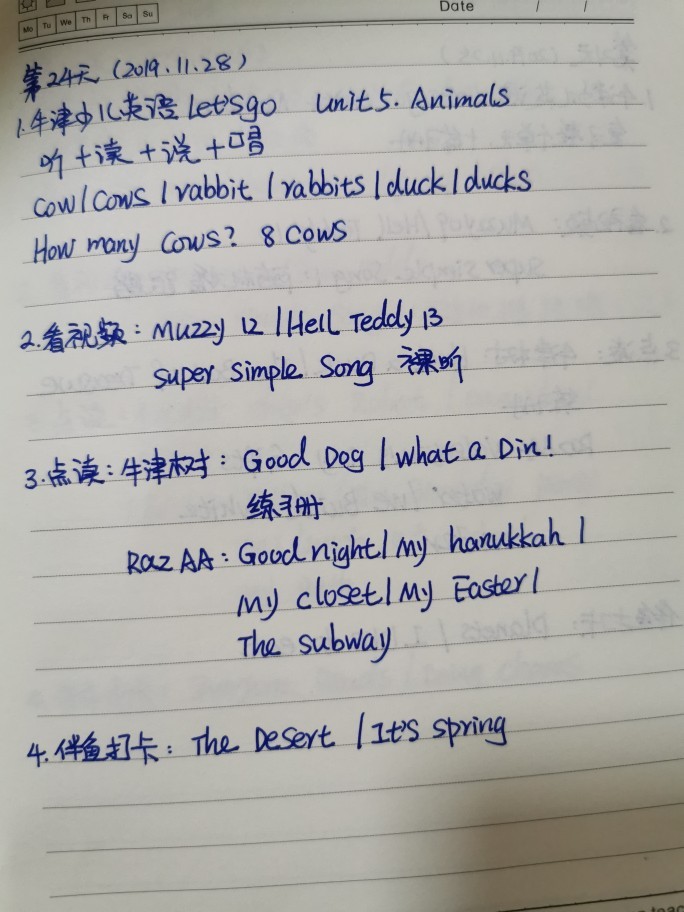 Date / /
Mo Tu We Th Fr Sa Su
第24天（2019.11.28）
1.牛津少儿英语 Let'sgo unit 5. Animals
听+读+说+唱
cow/cows / rabbit / rabbits / duck / ducks
How many cows? 8 cows
2.看视频：Muzzy 12 / Hell Teddy 13
super simple song 裸听
3.点读：牛津树：Good Dog / what a Din!
练习册
Raz AA：Good night / my hanukkah /
my closet / My Easter /
The subway
4.伴鱼打卡：The Desert / It's spring